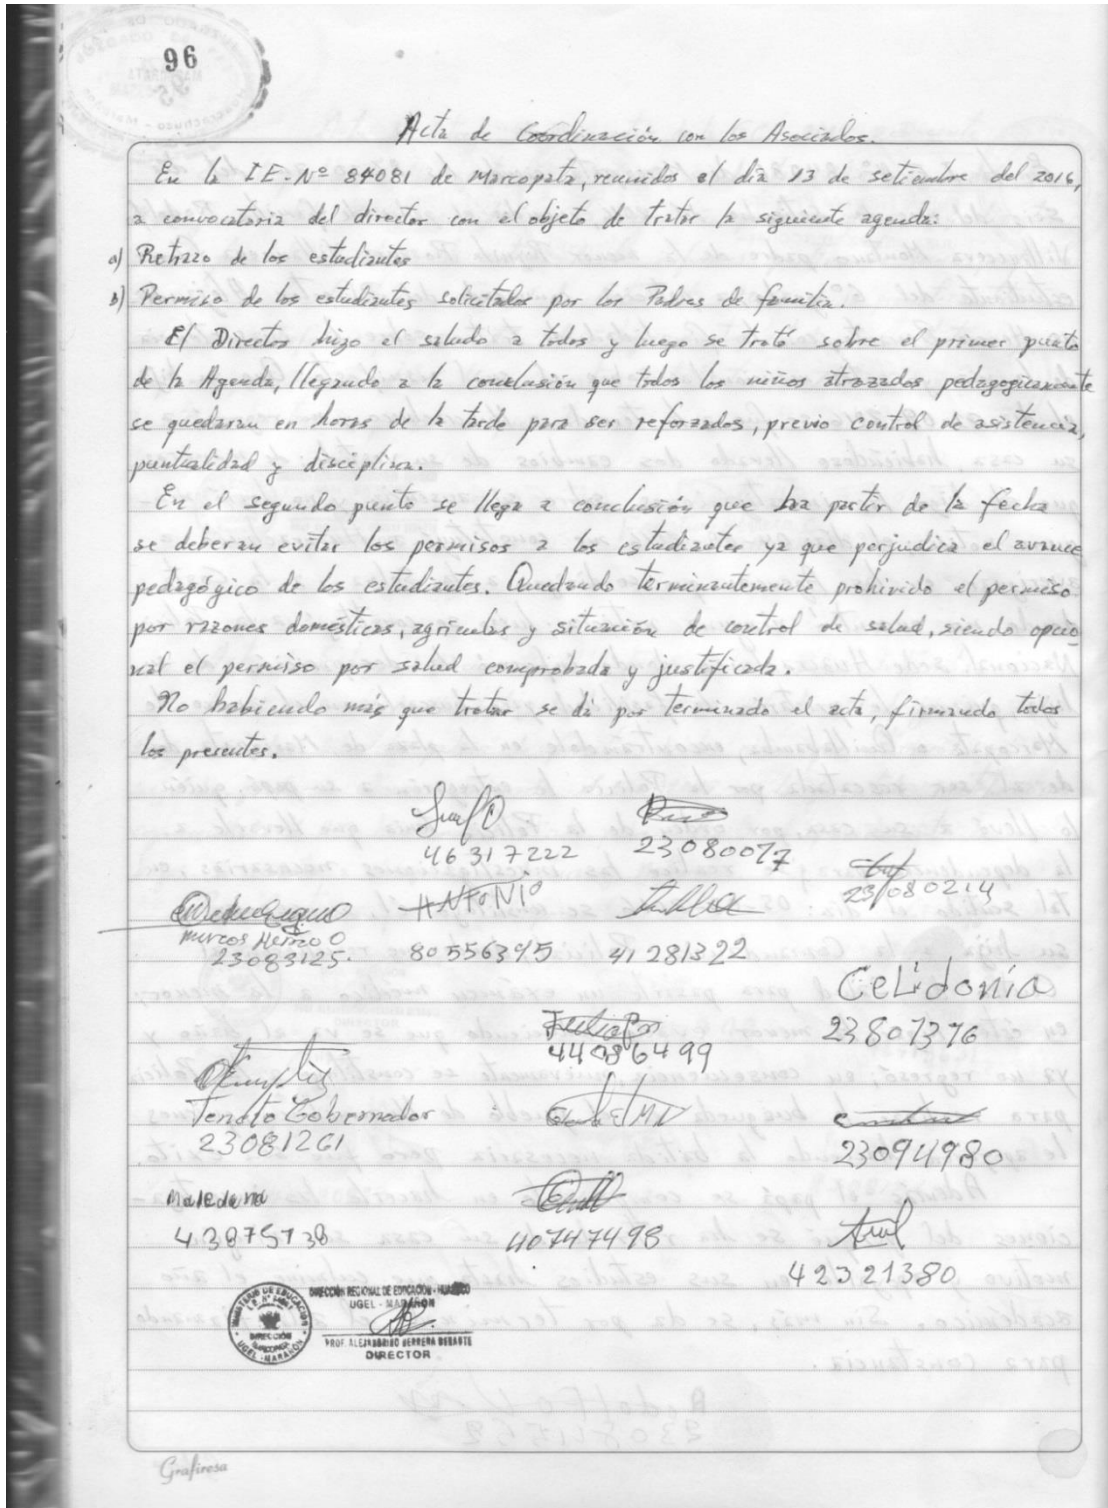 96
Acta de Coordinación con los Asociados.
En la I.E. Nº 84081 de Marcopata, reunidos el día 13 de setiembre del 2016,
a convocatoria del director con el objeto de tratar la siguiente agenda:
a) Retrazo de los estudiantes
b) Permiso de los estudiantes solicitados por los Padres de familia.
El Director hizo el saludo a todos y luego se trató sobre el primer punto
de la Agenda, llegando a la conclusión que todos los niños atrazados pedagogicamente
se quedaran en horas de la tarde para ser reforzados, previo control de asistencia,
puntualidad y disciplina.
En el segundo punto se llega a conclusión que ha partir de la fecha
se deberan evitar los permisos a los estudiantes ya que perjudica el avance
pedagógico de los estudiantes. Quedando terminantemente prohivido el permiso
por razones domésticas, agrícolas y situación de control de salud, siendo opcio
nal el permiso por salud comprobada y justificada.
No habiendo más que tratar se dá por terminado el acta, firmando todos
los presentes.
46317222
23080077
23080214
ANTONIO
Marcos
23083125.
80556395
41281322
CeLidonia
23807376
44086499
Gobernador
23081261
23094980
43875738
40747498
42321380
DIRECCIÓN REGIONAL DE EDUCACIÓN - HUÁNUCO
UGEL - MARAÑON
PROF. ALEJANDRINO HERRERA
DIRECTOR
MINISTERIO DE EDUCACION
DIRECCION
UGEL - MARAÑON
Grafiresa